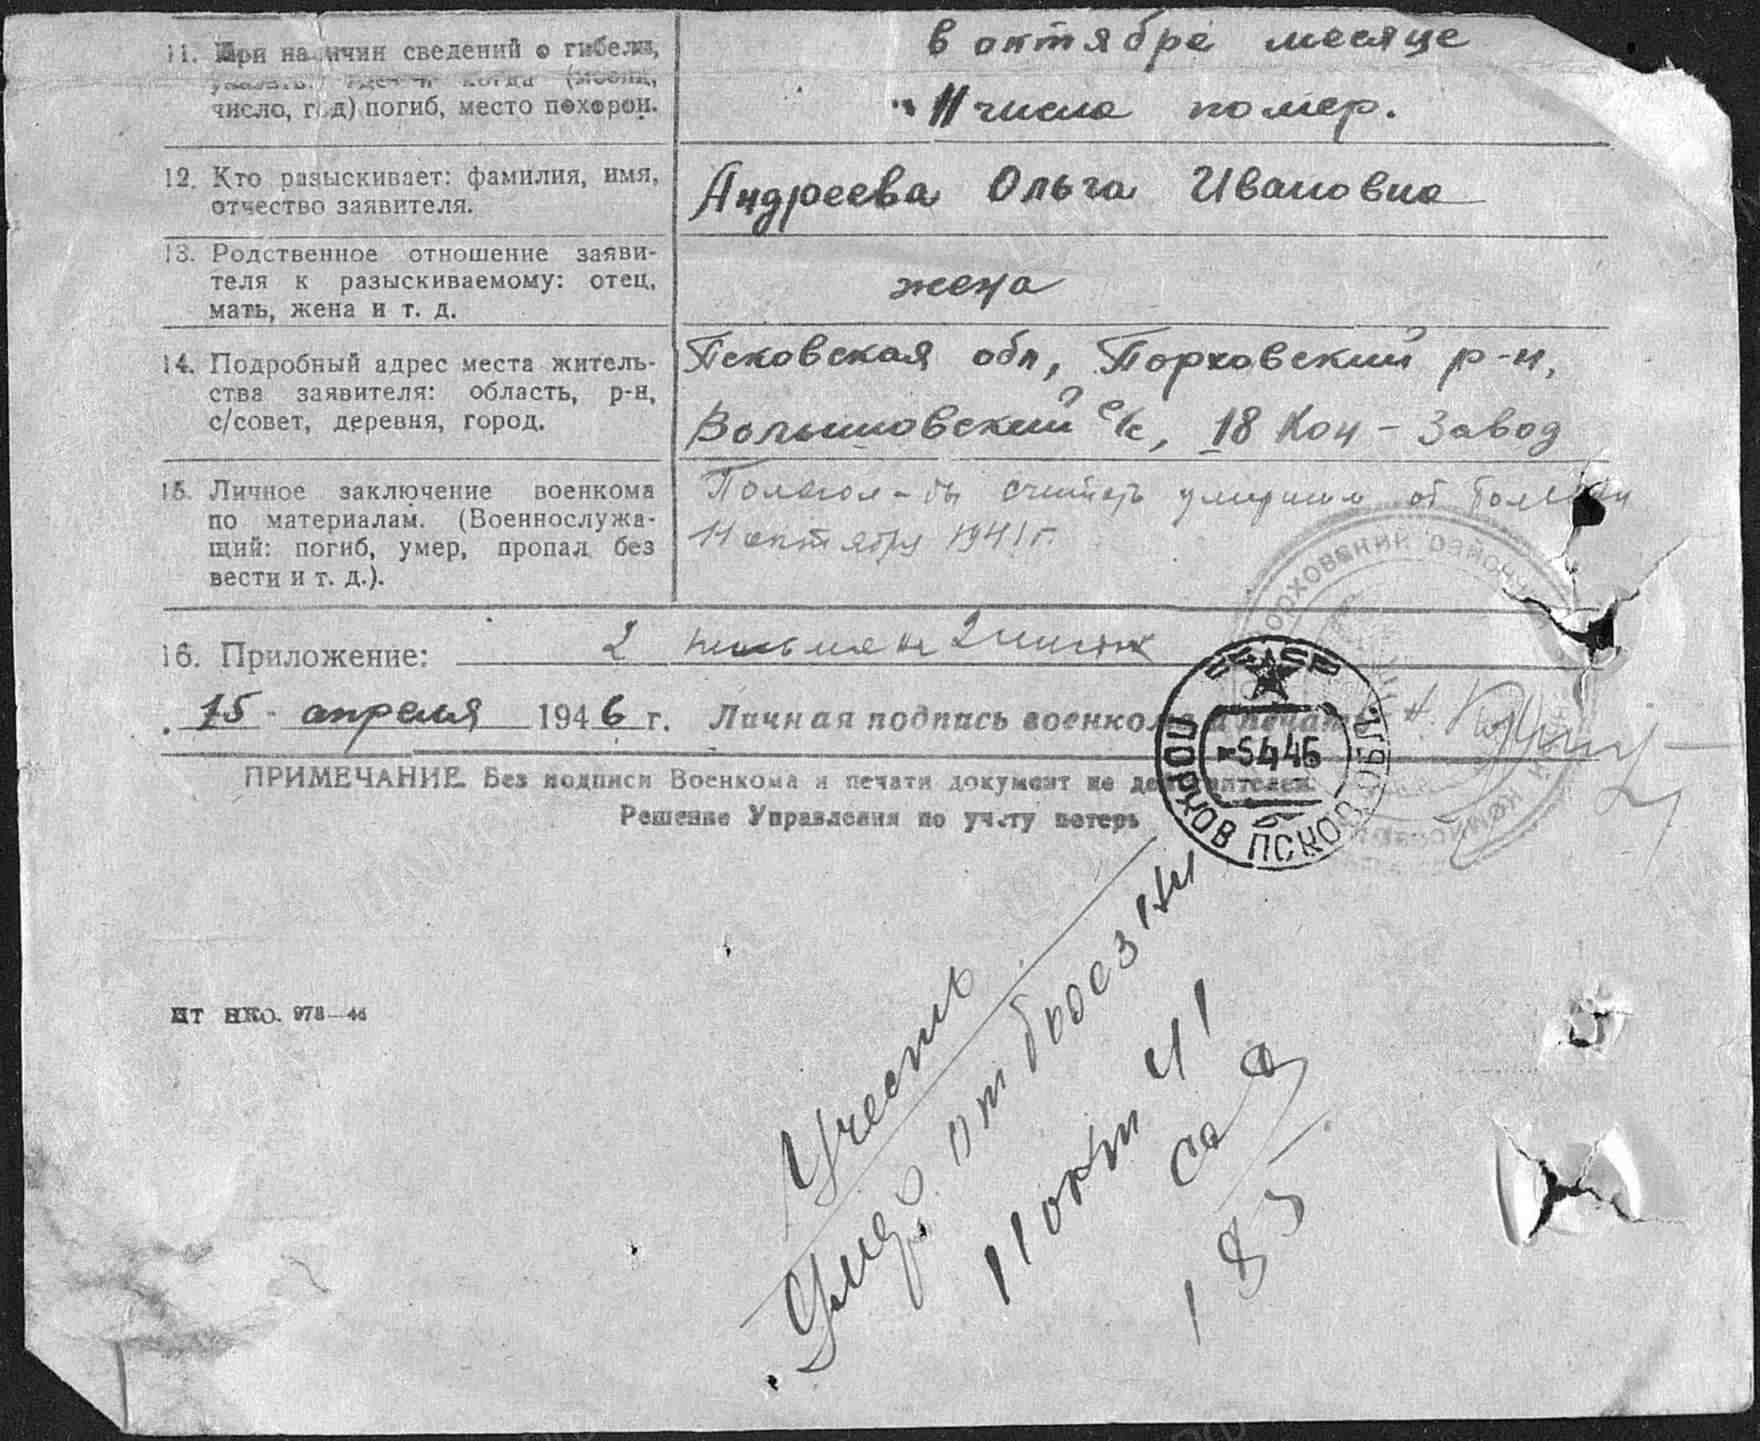 11. При наличии сведений о гибели,
указать: где и когда (месяц,
число, год) погиб, место похорон.
в октябре месяце
11 числа помер.
12. Кто разыскивает: фамилия, имя,
отчество заявителя.
Андреева Ольга Ивановна
13. Родственное отношение заяви-
теля к разыскиваемому: отец,
мать, жена и т. д.
жена
14. Подробный адрес места житель-
ства заявителя: область, р-н,
с/совет, деревня, город.
Псковская обл, Порховский р-н,
Волышовский с/с, 18 Кон-Завод
15. Личное заключение военкома
по материалам. (Военнослужа-
щий: погиб, умер, пропал без
вести и т. д.).
Полагал-бы считать умершим от болезни
11 октября 1941 г.
16. Приложение: 2 письма на 2 листах
15 апреля 1946 г. Личная подпись военкома и печать
ПРИМЕЧАНИЕ. Без подписи Военкома и печати документ не действителен.
Решение Управления по учету потерь
СССР
ПОРХОВ ПСКОВ. ОБЛ.
5446
б
Учесть
Умер от болезни
11 окт 41
183
ШТ НКО. 978—44